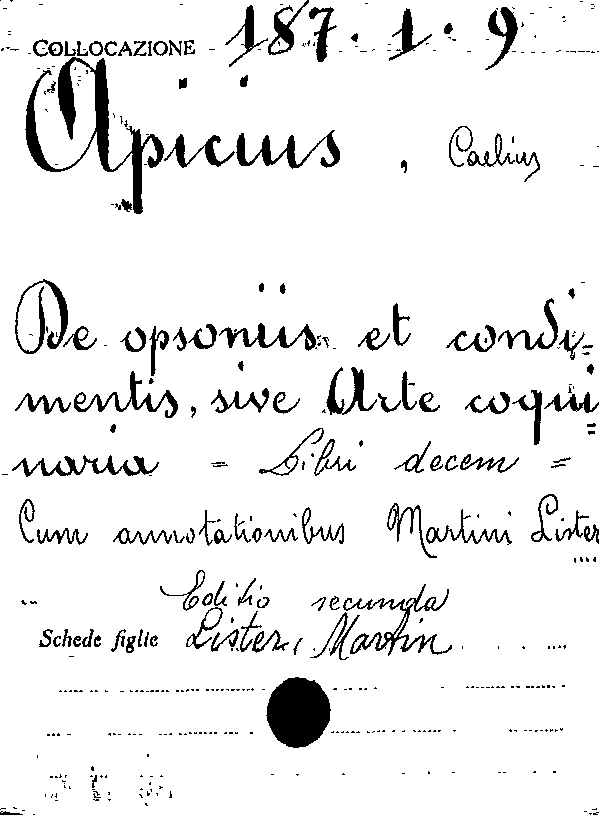 COLLOCAZIONE 187.1.9
Apicius, Caelius
De opsoniis et condi-
mentis, sive Arte coqui=
naria = Libri decem =
Cum annotationibus Martini Lister
Editio secunda
Schede figlie Lister, Martin